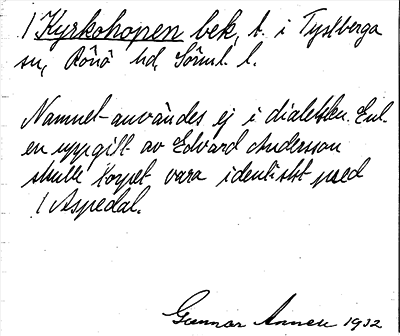 1 Kyrkohopen bek, t. i Tystberga
sn, Rönö hd, Söml. l.
Namnet användes ej i dialekten. Enl.
en uppgift av Edvard Andersson
skulle torpet vara identiskt med
1 Aspedal.
Gunnar 1932